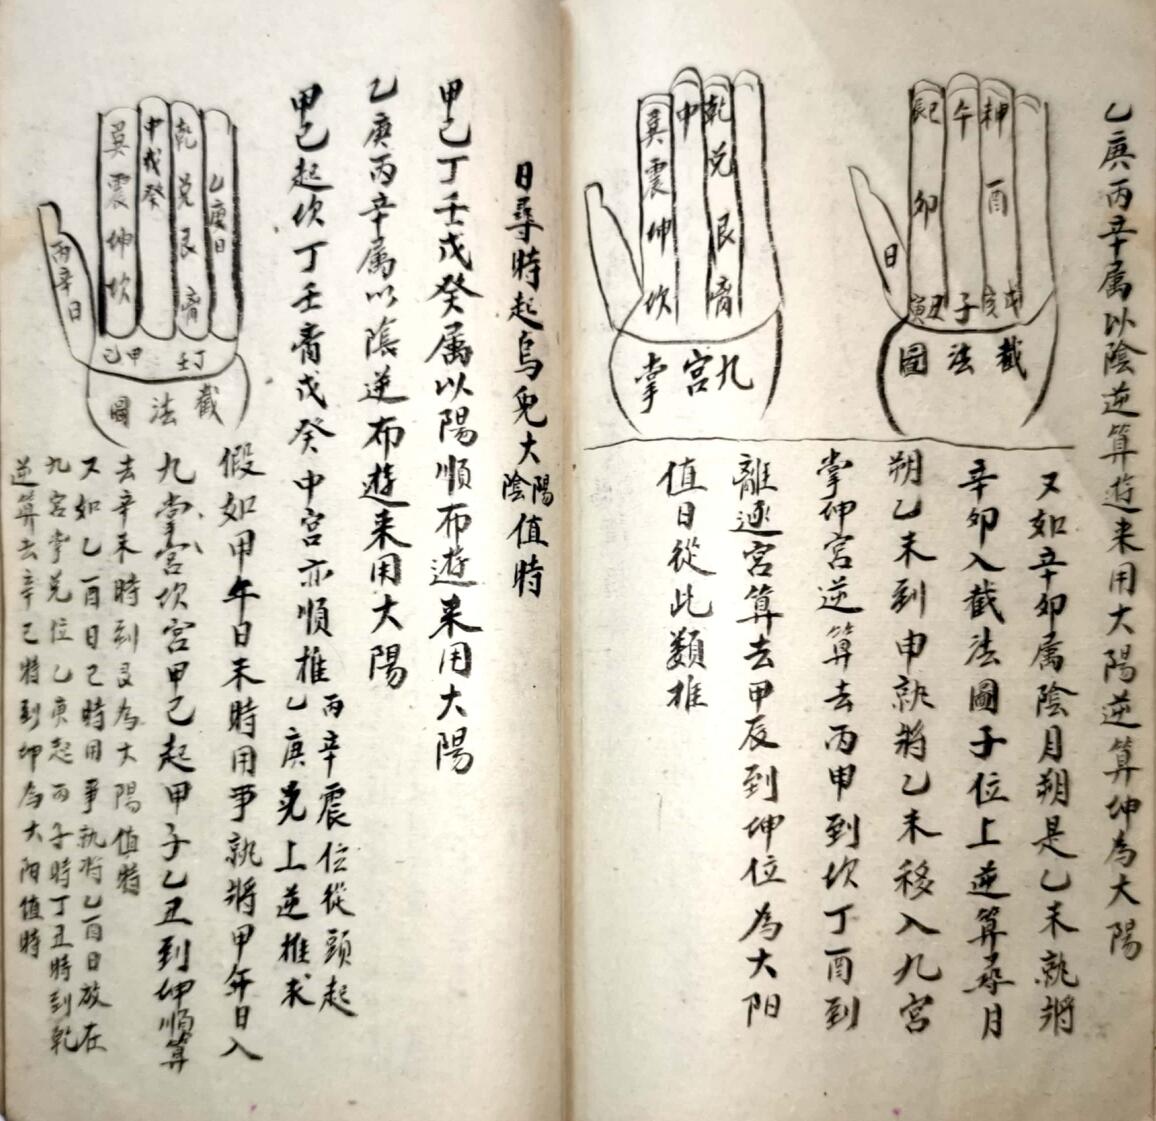 乙庚丙辛属以陰逆算遊来用大陽逆算坤為大陽
辰巳
午
申
卯
酉
日
寅丑
子
戌亥
截法圖
又如辛卯属陰月朔是乙未就將
辛卯入截法圖子位上逆算尋月
朔乙未到申就將乙未移入九宮
掌坤宮逆算去丙申到坎丁酉到
離逐宮算去甲辰到坤位為大阳
值日從此類推
巽震坤坎
中
乾兌艮离
九宮掌
日尋時起烏兔大陽陰值時
甲己丁壬戊癸属以陽順布遊来用大陽
乙庚丙辛属以陰逆布遊来用大陽
甲己起坎丁壬离戊癸中宮亦順推
丙辛震位從頭起
乙庚兌上逆推求
巽震坤坎
中戊癸
乾兌艮离
乙庚日
丙辛日
甲己
丁壬
截法圖
假如甲午日未時用事就將甲午日入
九掌宮坎宮甲己起甲子乙丑到坤順算
去辛未時到艮為大陽值時
又如乙酉日巳時用事就將乙酉日放在
九宮掌兌位乙庚起丙子時丁丑時到乾
逆算去辛巳時到坤為大阳值時